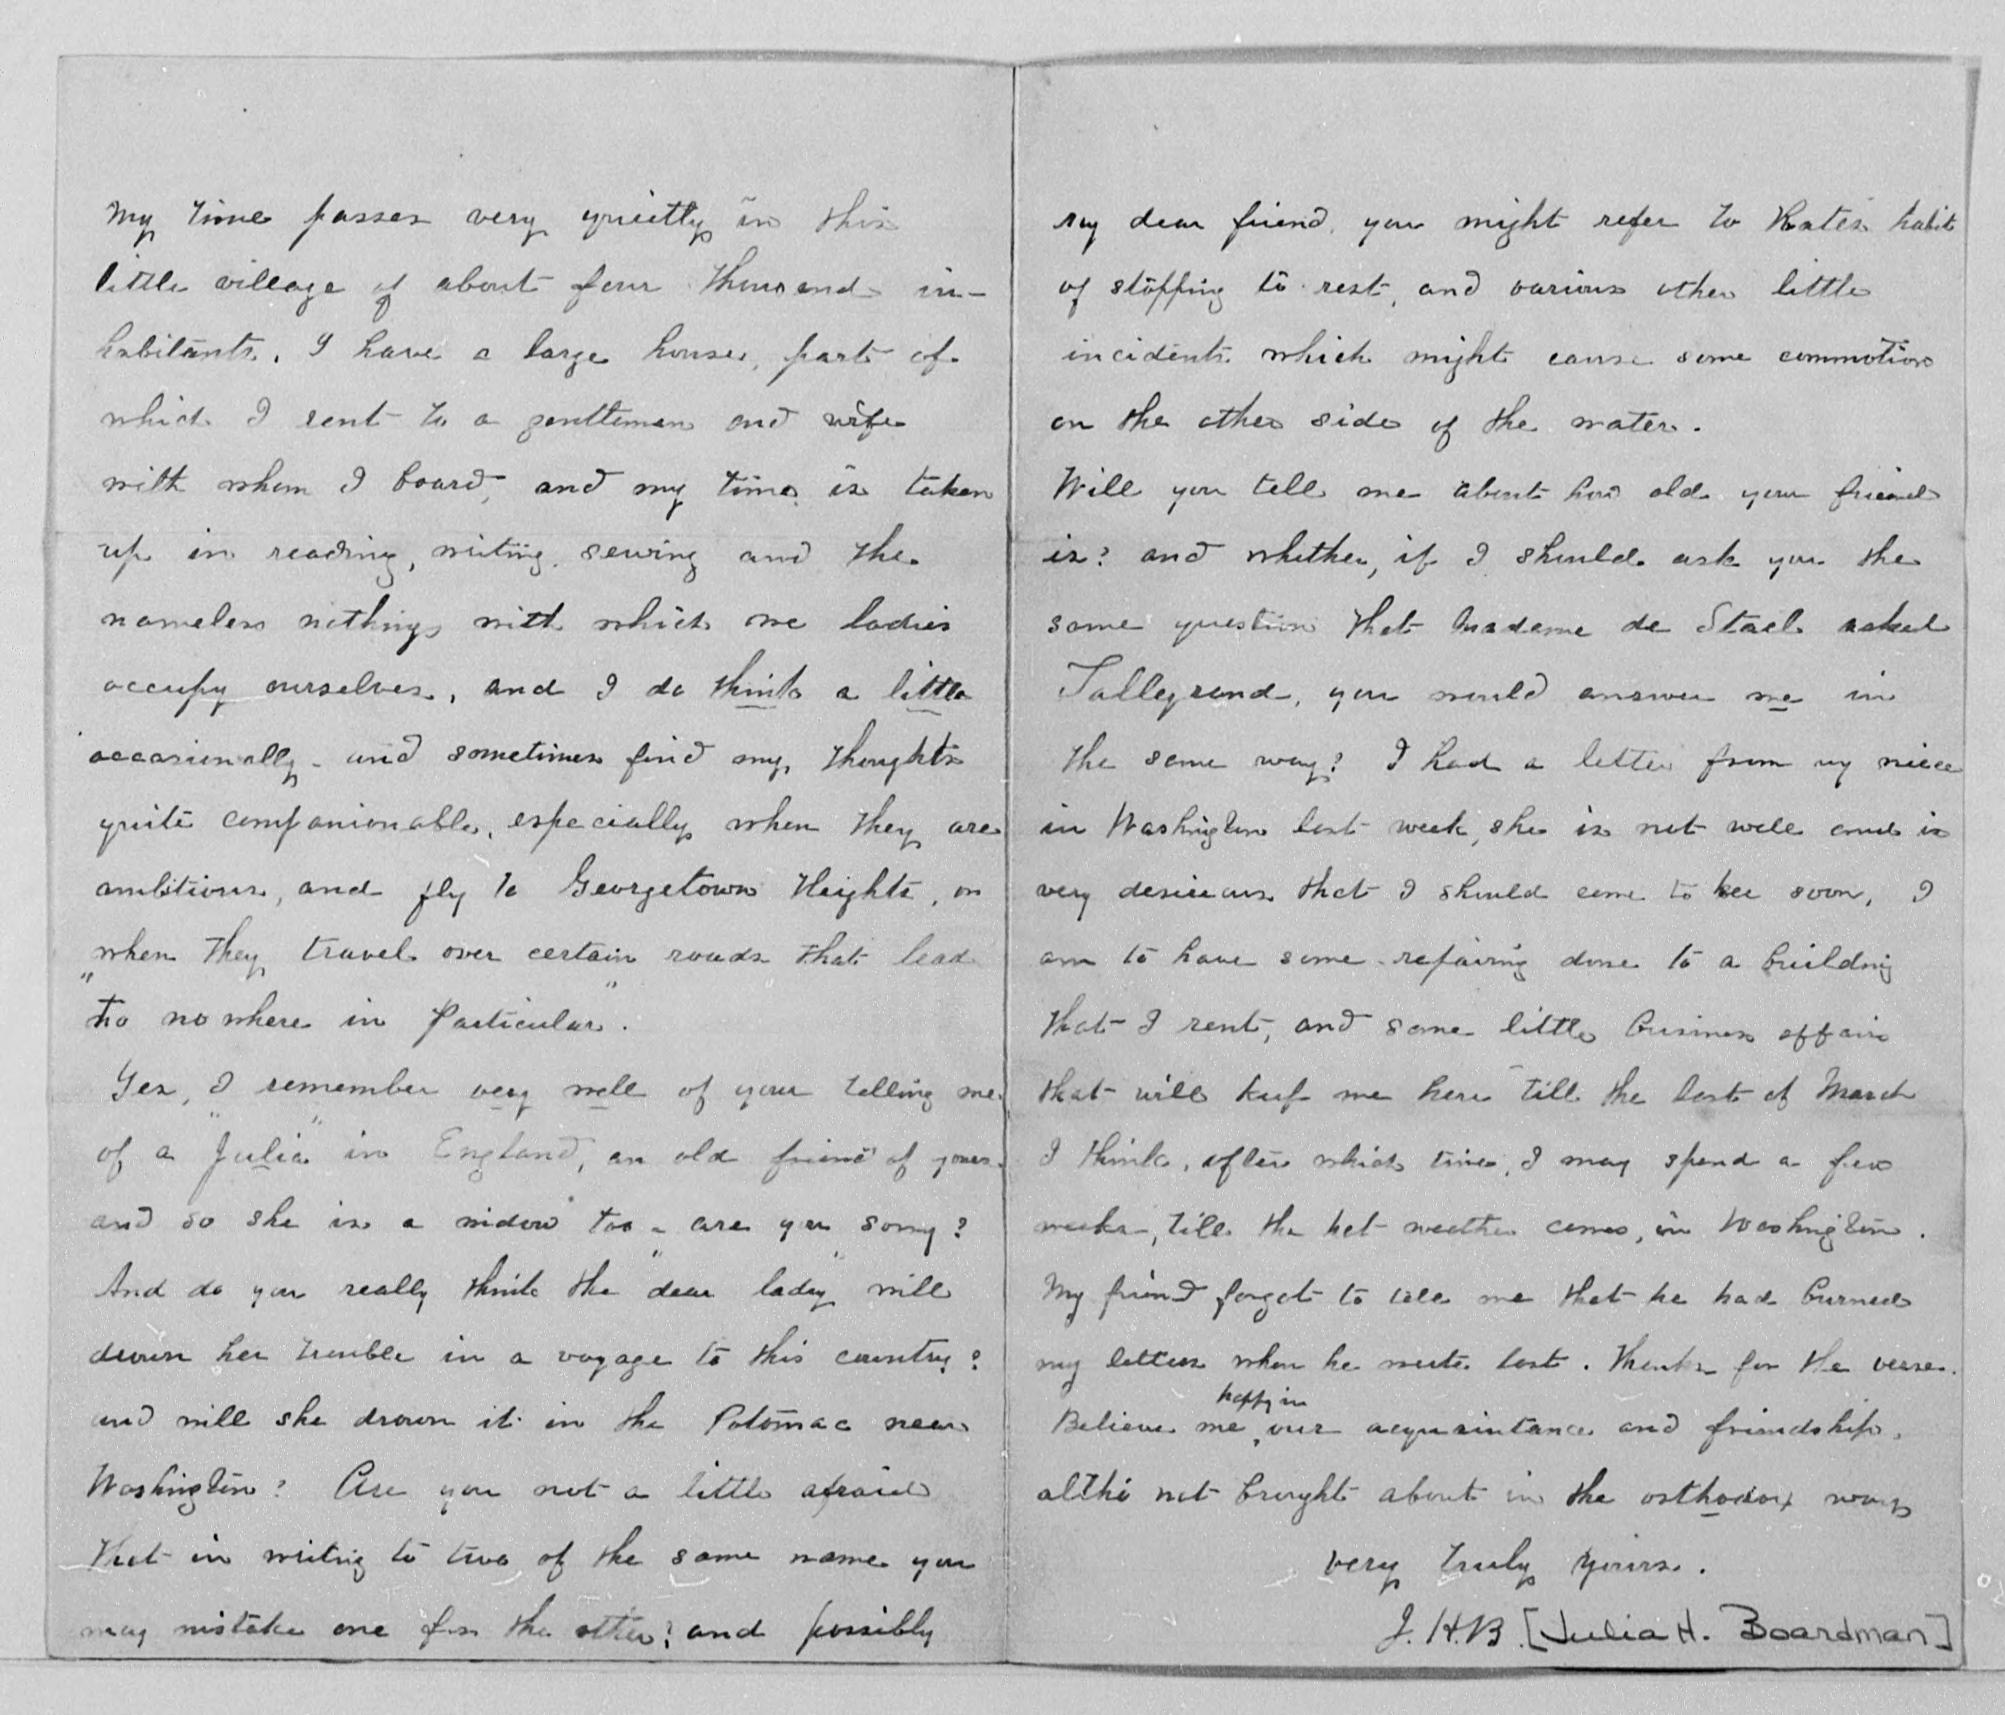 My time passes very quietly in this
little village of about four thousand in-
habitants. I have a large house, part of
which I rent to a gentleman and wife
with whom I board, and my time is taken
up in reading, writing, sewing and the
nameless nothings with which we ladies
occupy ourselves, and I do think a little
occasionally - and sometimes find my thoughts
quite companionable, especially when they are
ambitious, and fly to Georgetown Heights, or
when they travel over certain roads that lead
"to nowhere in particular".
Yes, I remember very well of your telling me
of a "Julia" in England, an old friend of yours
and so she is a widow too - are you sorry?
And do you really think the "dear lady" will
drown her trouble in a voyage to this country?
and will she drown it in the Potomac near
Washington? Are you not a little afraid
that in writing to two of the same name you
may mistake one for the other? and possibly
my dear friend, you might refer to Kate's habit
of stopping to rest, and various other little
incidents which might cause some commotion
on the other side of the water.
Will you tell me about how old your friend
is? and whether, if I should ask you the
same question that Madame de Stael asked
Talleyrand, you would answer me in
the same way? I had a letter from my niece
in Washington last week, she is not well and is
very desirous that I should come to her soon, I
am to have some repairing done to a building
that I rent, and some little business affairs
that will keep me here till the last of March
I think, after which time, I may spend a few
weeks, till the hot weather comes, in Washington.
My friend forgot to tell me that he had burned
my letters when he wrote last. Thanks for the verse.
Believe me, happy in our acquaintance and friendship,
altho not brought about in the orthodox way
very truly yours.
J.H.B. [Julia H. Boardman]